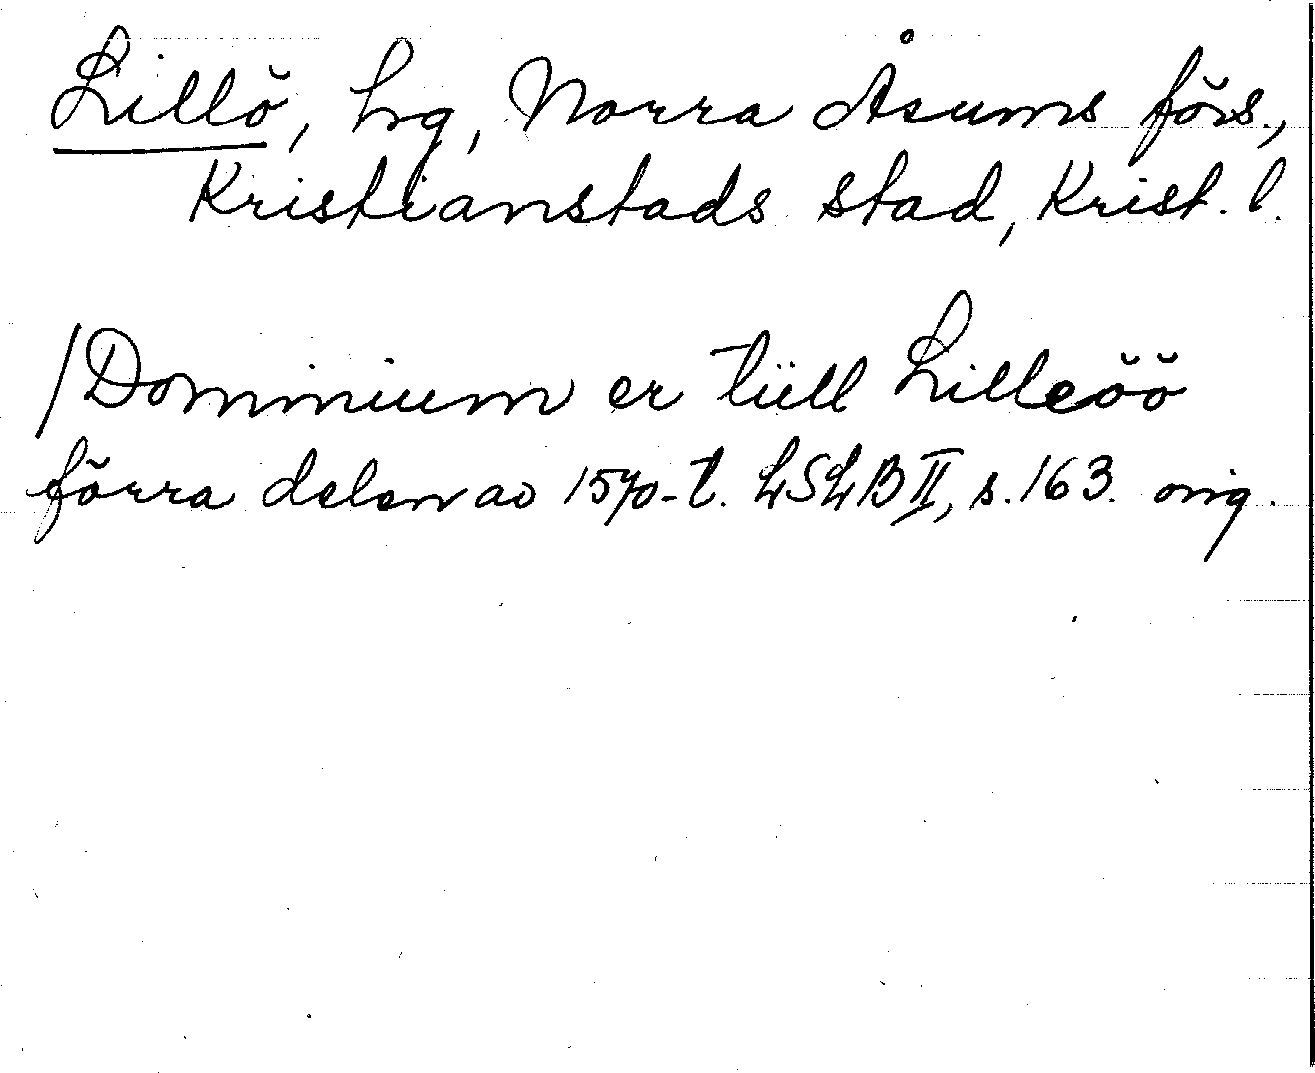 Lillö, hg, Norra Åsums förs.,
Kristianstads stad, Krist. l.
/Dominium er tiill Lilleöö
förra delen av 1570-t. LSLB II, s. 163. orig.